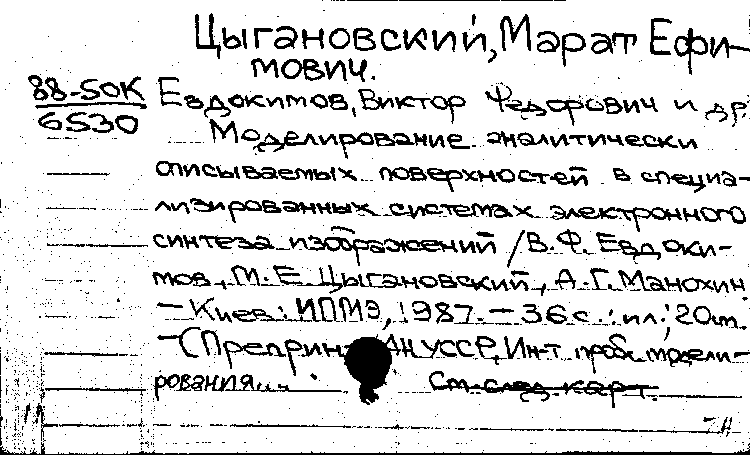 Цыгановский, Марат Ефи-
мович.
88-50К
6530
Евдокимов, Виктор Федорович и др.
Моделирование аналитически
описываемых поверхностей в специа-
лизированных системах электронного
синтеза изображений / В.Ф. Евдоки-
мов, М.Е. Цыгановский, А.Г. Манохин.
— Киев: ИПМЭ, 1987. — 36 с.: ил.; 20 см.
— (Препринт АН УССР, Ин-т пробл. модели-
рования...
См. след. карт.